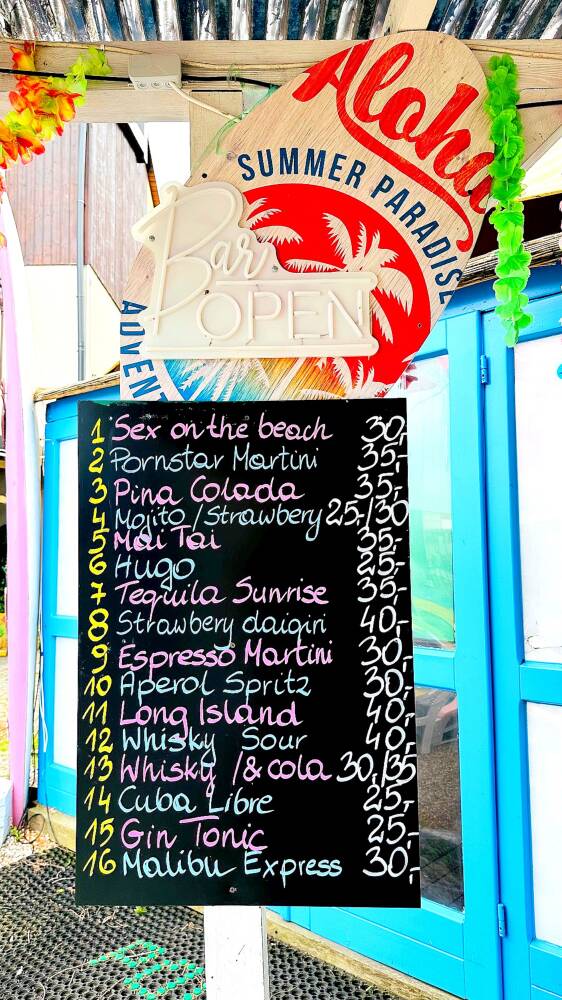 Aloha
SUMMER PARADISE
ADVENT
Bar
OPEN
1 Sex on the beach 30,-
2 Pornstar Martini 35,-
3 Pina Colada 35,-
4 Mojito / Strawbery 25,-/30
5 Mai Tai 35,-
6 Hugo 25,-
7 Tequila Sunrise 35,-
8 Strawbery daigiri 40,-
9 Espresso Martini 30,-
10 Aperol Spritz 30,-
11 Long Island 40,-
12 Whisky Sour 40,-
13 Whisky /& cola 30,/35
14 Cuba Libre 25,-
15 Gin Tonic 25,-
16 Malibu Express 30,-